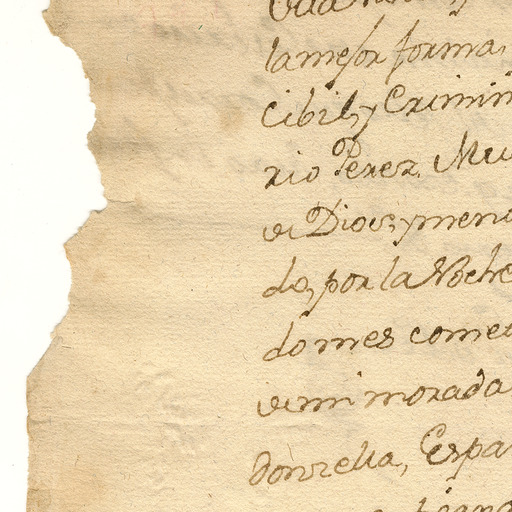 la mejor forma
Cibil, y Crimin
rio Perez. Mu
de Dios; y meno
do, por la Noche
do mes comet
de mi morada
donzella, Espa